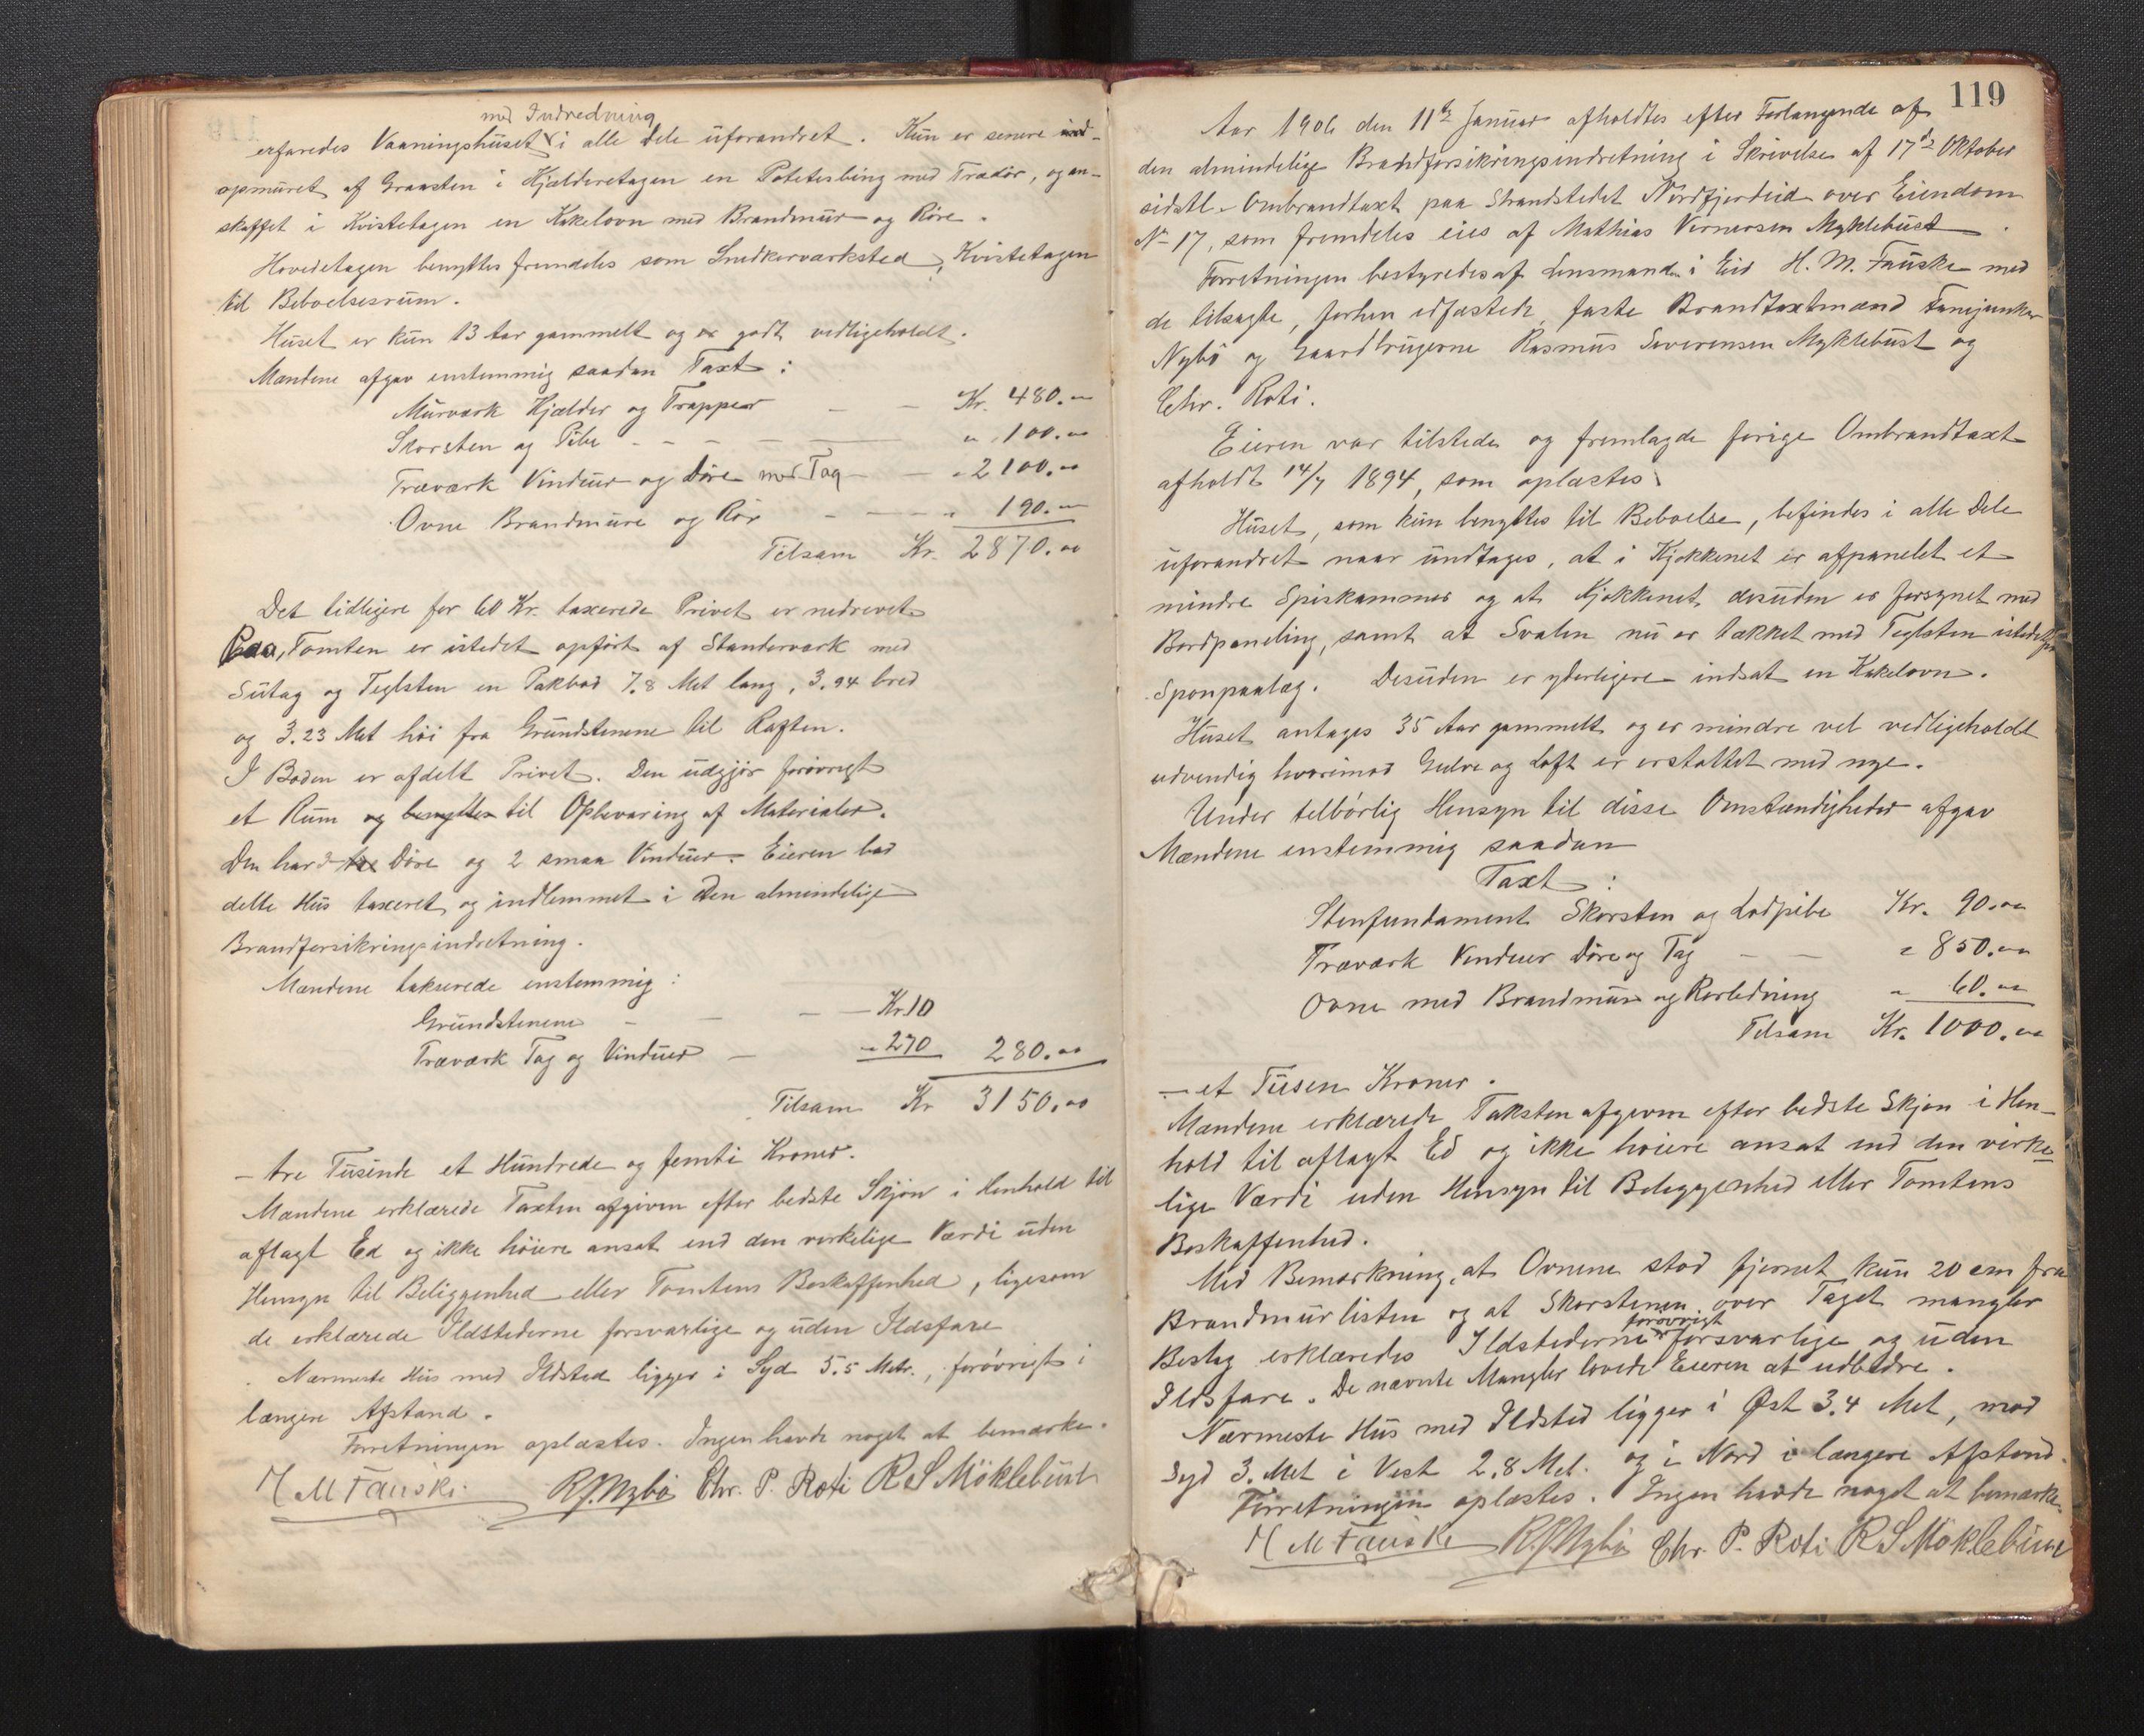 med Indredning
erfaredes Vaaningshuset i alle Dele uforandret. Kun er senere ind-
opmuret af Graasten i Kjælderetagen en Potetesbing med Trædør, og an-
skaffet i Kvistetagen en Kakelovn med Brandmur og Røre.
Hovedetagen benyttes fremdeles som Snedkerværksted, Kvistetagen
til Beboelsesrum.
Huset er kun 13 Aar gammelt og er godt vedligeholdt.
Mændene afgav enstemmig saadan Taxt:
Murværk Kjælder og Trapper - - Kr. 480.00
Skorsten og Pibe - - - - " 100.00
Træværk Vinduer og Døre med Tag - - " 2100.00
Ovne Brandmure og Rør - - - " 190.00
Tilsam Kr. 2870.00
Det tidligere for 60 Kr. taxerede Privet er nedrevet.
Paa Tomten er istedet opført af Standerværk med
Sutag og Teglsten en Pakbod 7.8 Met lang, 3.94 bred
og 3.23 Met høi fra Grundstenene til Raften.
I Boden er afdelt Privet. Den udgjør forøvrigt
et Rum og benyttes til Opbevaring af Materialer.
Den har 3 Døre og 2 smaa Vinduer. Eieren bad
dette Hus taxeret og indlemmet i den almindelige
Brandforsikringsindretning.
Mændene takserede enstemmig:
Grundstenene - - - Kr. 10
Træværk Tag og Vinduer - " 270 280.00
Tilsam Kr 3150.00
- tre Tusinde et Hundrede og femti Kroner.
Mændene erklærede Taxten afgiven efter bedste Skjøn i Henhold til
aflagt Ed og ikke høiere ansat end den virkelige Værdi uden
Hensyn til Beliggenhed eller Tomtens Beskaffenhed, ligesom
de erklærede Ildstederne forsvarlige og uden Ildsfare
Nærmeste Hus med Ildsted ligger i Syd 5.5 Metr., forøvrigt i
længere Afstand.
Forretningen oplæstes. Ingen havde noget at bemærke.
H M Fauske R.J. Nybø Chr. P. Roti R S Møklebust
119
Aar 1906 den 11te Januar afholdtes efter Forlangende af
den almindelige Brandforsikringsindretning i Skrivelse af 17de Oktober
sidstl. Ombrandtaxt paa Strandstedet Nordfjordeid over Eiendom
No 17, som fremdeles eies af Mathias Vernersen Myklebust.
Forretningen bestyredes af Lensmand i Eid H. M. Fauske med
de tilsagte, forhen edfæstede, faste Brandtaxtmænd Fanejunker
Nybø og Gaardbrugerne Rasmus Severensen Myklebust og
Chr. Roti.
Eieren var tilstede og fremlagde forrige Ombrandtaxt
afholdt 14/7 1894, som oplæstes.
Huset, som kun benyttes til Beboelse, befindes i alle Dele
uforandret naar undtages, at i Kjøkkenet er afpanelet et
mindre Spiskammer og at Kjøkkenet desuden er forsynet med
Bordpaneling, samt at Svalen nu er tækket med Teglsten istedetfor
Sponpaalæg. Desuden er yderligere indsat en Kakelovn.
Huset antages 35 Aar gammelt og er mindre vel vedligeholdt
udvendig hvorimod Gulve og Loft er erstattet med nye.
Under tilbørlig Hensyn til disse Omstændigheder afgav
Mændene enstemmig saadan
Taxt:
Stenfundament Skorsten og Lodpibe Kr. 90.00
Træværk Vinduer Døre og Tag - - " 850.00
Ovne med Brandmure og Rørledning " 60.00
Tilsam Kr. 1000.00
- et Tusen Kroner.
Mændene erklærede Taksten afgiven efter bedste Skjøn i Hen-
hold til aflagt Ed og ikke høiere ansat end den virke-
lige Værdi uden Hensyn til Beliggenhed eller Tomtens
Beskaffenhed.
Med Bemærkning, at Ovnene stod fjernet kun 20 cm fra
Brandmurlisten og at Skorstenen over Taget mangler
forøvrigt
Beslag erklæredes Ildstederne forsvarlige og uden
Ildsfare. De nævnte Mangler lovede Eieren at udbedre.
Nærmeste Hus med Ildsted ligger i Øst 3.4 Met, mod
Syd 3. Met i Vest 2.8 Met. og i Nord i længere Afstand.
Forretningen oplæstes. Ingen havde noget at bemærke.
H M Fauske R.J. Nybø Chr. P. Roti R S Møklebust